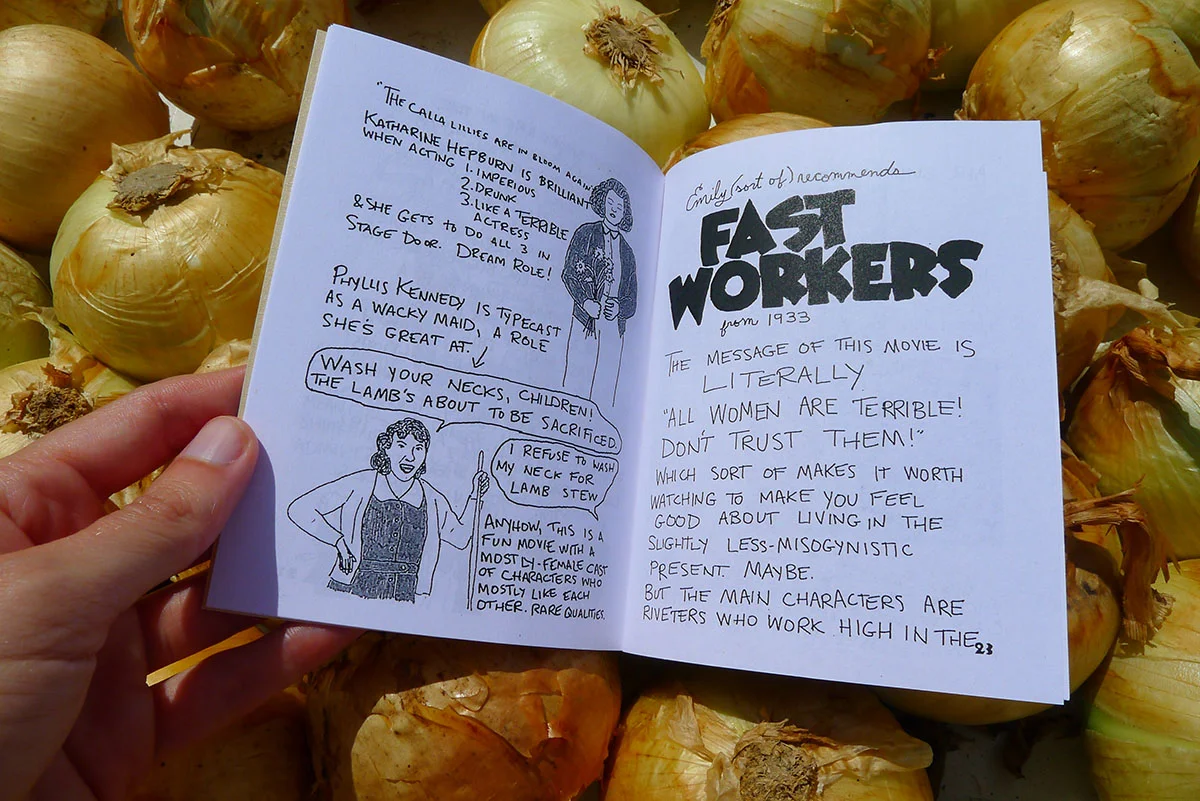 "THE CALLA LILLIES ARE IN BLOOM AGAIN
KATHARINE HEPBURN IS BRILLIANT
WHEN ACTING 1. IMPERIOUS
2. DRUNK
3. LIKE A TERRIBLE
ACTRESS
& SHE GETS TO DO ALL 3 IN
STAGE DOOR. DREAM ROLE!
PHYLLIS KENNEDY IS TYPECAST
AS A WACKY MAID, A ROLE
SHE'S GREAT AT.
WASH YOUR NECKS, CHILDREN!
THE LAMB'S ABOUT TO BE SACRIFICED.
I REFUSE TO WASH
MY NECK FOR
LAMB STEW
ANYHOW, THIS IS A
FUN MOVIE WITH A
MOSTLY-FEMALE CAST
OF CHARACTERS WHO
MOSTLY LIKE EACH
OTHER. RARE QUALITIES.
Emily (sort of) recommends
FAST
WORKERS
from 1933
THE MESSAGE OF THIS MOVIE IS
LITERALLY
"ALL WOMEN ARE TERRIBLE!
DON'T TRUST THEM!"
WHICH SORT OF MAKES IT WORTH
WATCHING TO MAKE YOU FEEL
GOOD ABOUT LIVING IN THE
SLIGHTLY LESS-MISOGYNISTIC
PRESENT. MAYBE.
BUT THE MAIN CHARACTERS ARE
RIVETERS WHO WORK HIGH IN THE
23